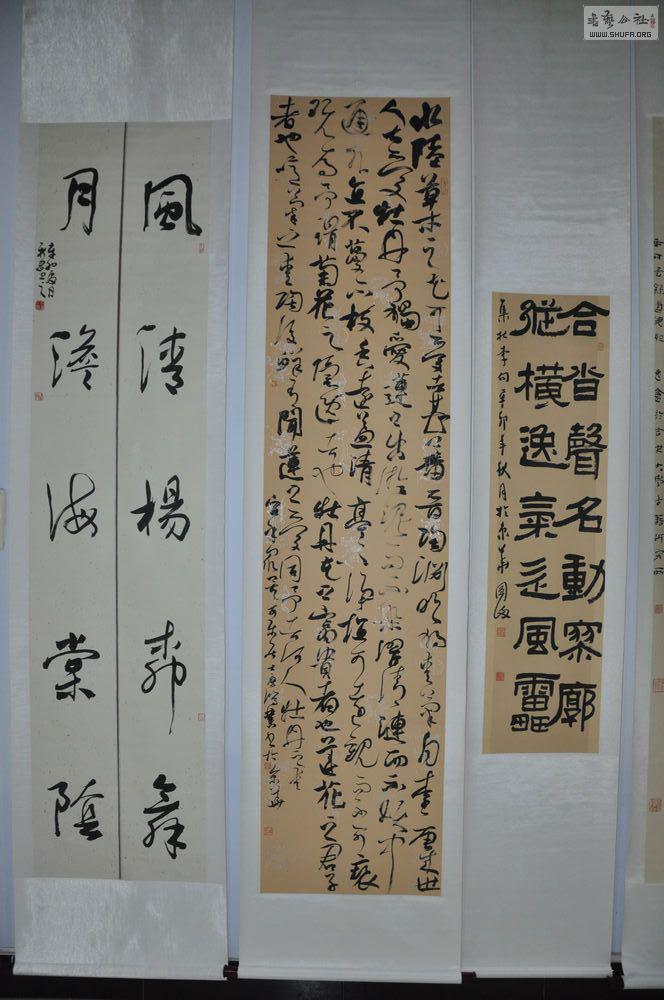 書藝公社
WWW.SHUFA.ORG
合沓聲名動寥廓
縱橫逸氣走風雷
辛卯年秋月於京華
水陸草木之花可愛者甚蕃晉陶淵明獨愛菊自李唐來世
人甚愛牡丹予獨愛蓮之出淤泥而不染濯清漣而不妖中
通外直不蔓不枝香遠益清亭亭淨植可遠觀而不可褻
玩焉予謂菊花之隱逸者也牡丹花之富貴者也蓮花之君子
者也噫菊之愛陶後鮮有聞蓮之愛同予者何人牡丹之愛
宜乎眾矣
風清楊柳舞
月澹海棠陰